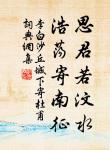 思君若汶水
浩荡寄南征
李白沙丘城下寄杜甫
詞典網集